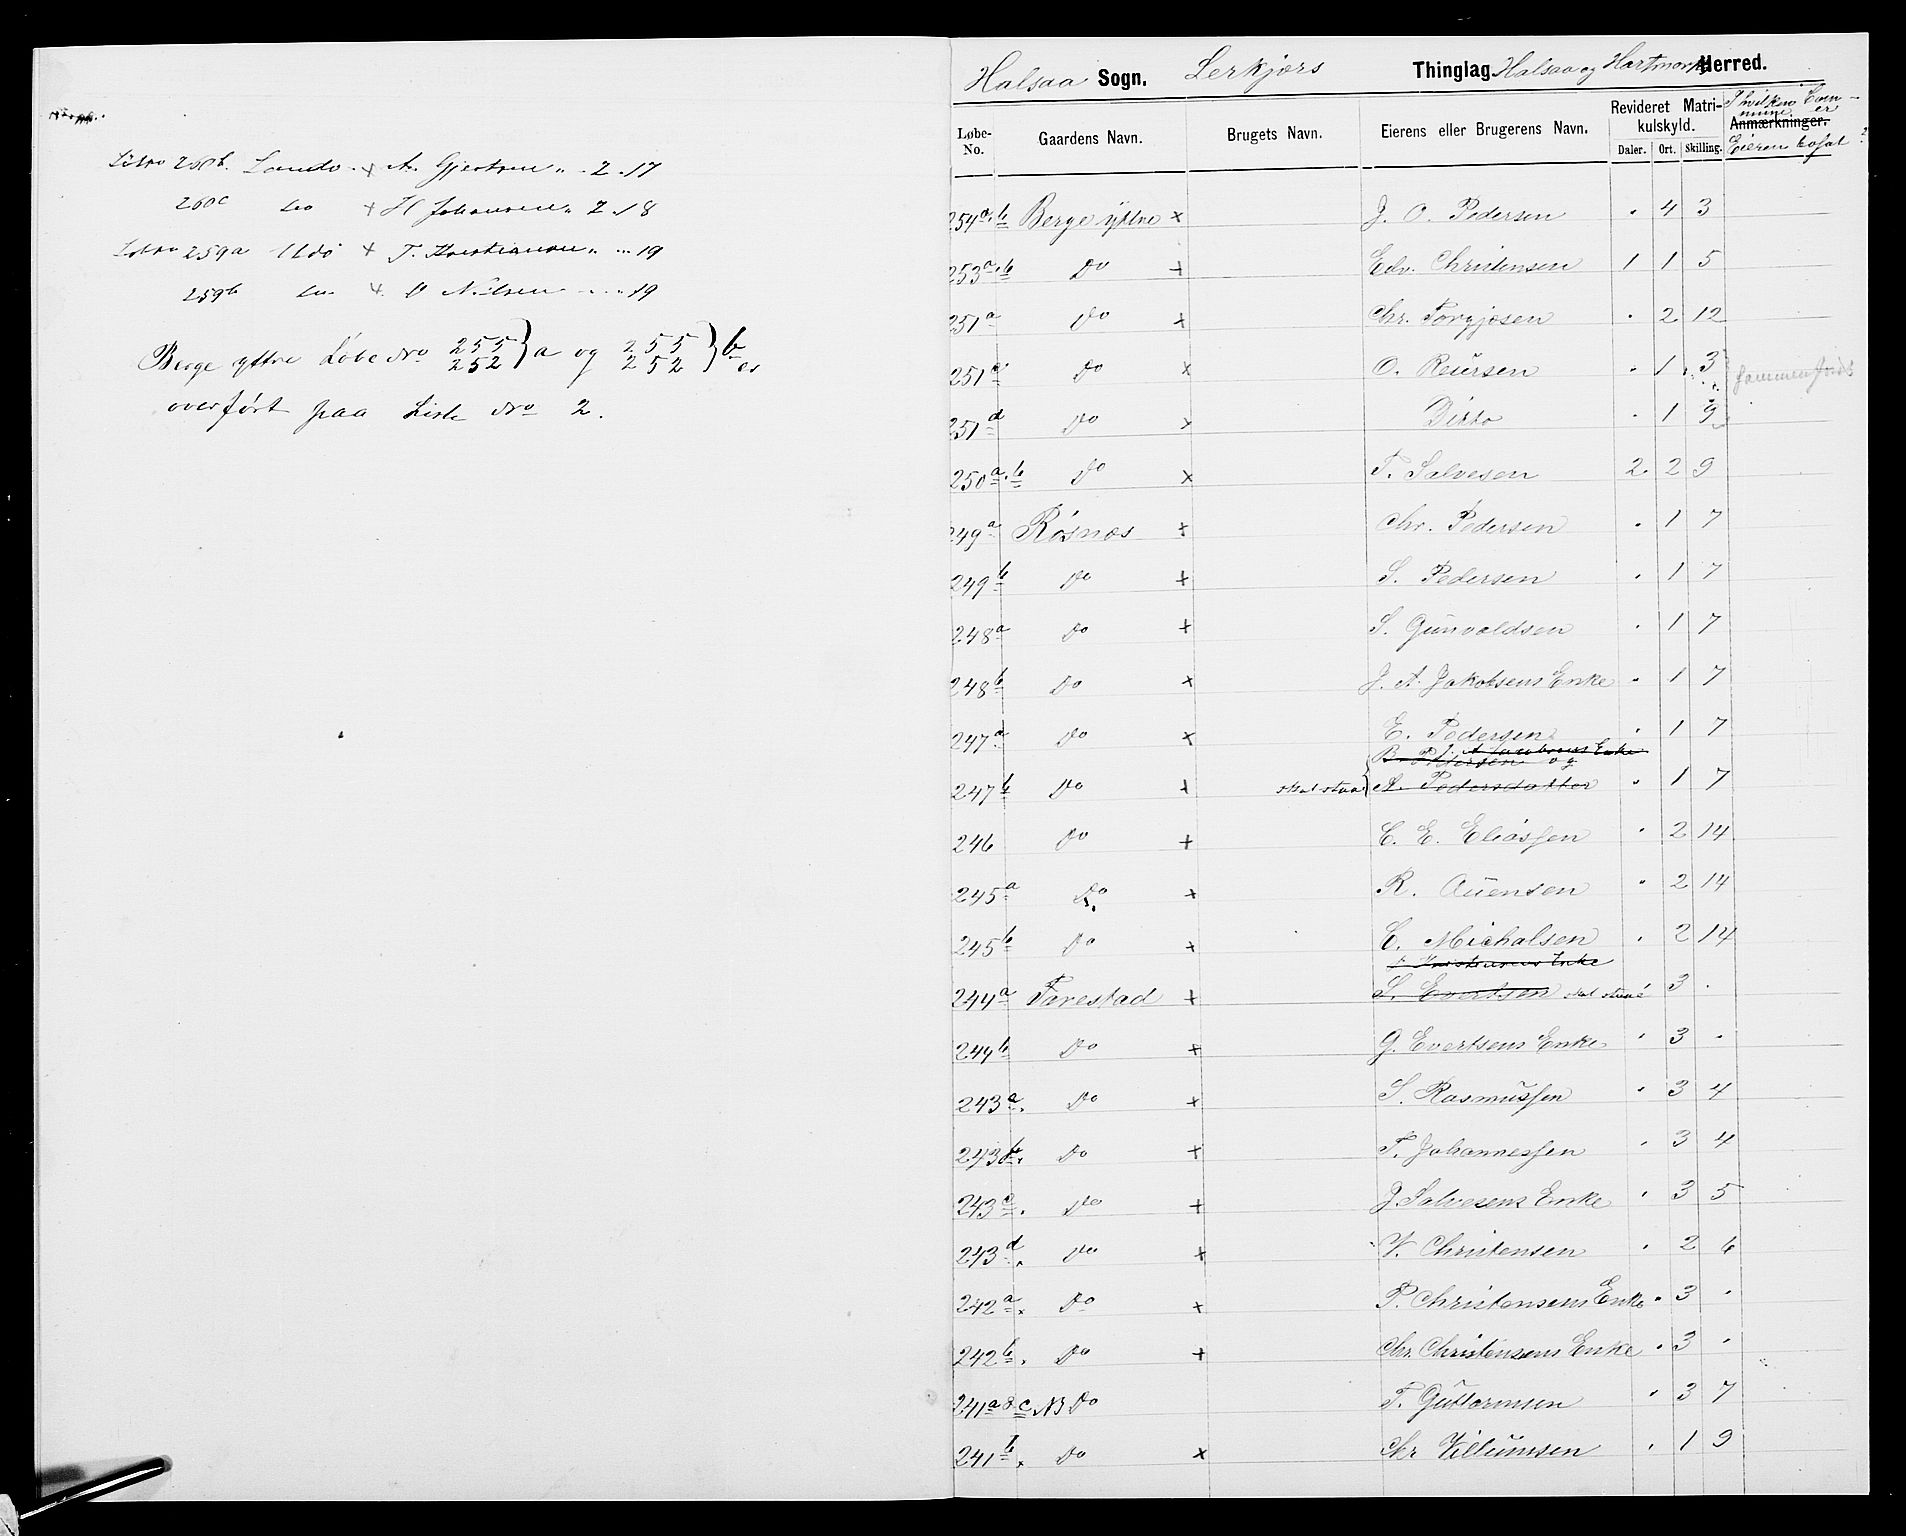 Löbno 260b. Lando. x A. Gjertsen " . 2 . 17
260c do x H Johansen " 2 . 18
Löbno 259a Udö x T. Kristiansen " ... 19
259b do x O Nilsen " ... 19
Berge yttre Løbe No 255 252 } a og 255 252 } b er
overført paa Liste No 2.
Halsaa Sogn. Lerkjærs Thinglag Halsaa og Hartmark Herred.
Løbe-No. Gaardens Navn. Brugets Navn. Eierens eller Brugerens Navn. Revideret Matrikulskyld. Daler. Ort. Skilling. Anmærkninger. I hvilken Commune er Eieren bosat?
254a.b Berge yttre x J. O. Pedersen " 4 3
253a.b Do x Edv. Christensen 1 1 5
251a Do x Chr. Torgjesen " 2 12
251c Do x O. Reiersen " 1 3 sammenføiet
251d Do x Ditto " 1 9
250a.b Do x T. Salvesen 2 2 9
249a Røsnæs x Chr. Pedersen " 1 7
249b Do x S. Pedersen " 1 7
248a Do x S. Gunvaldsen " 1 7
248b Do x J. A. Jakobsens Enke " 1 7
247a Do x E. Pedersen " 1 7
J. A. Jacobsens Enke
B. Pedersen og
247b Do x skal staa A. Pedersdatter " 1 7
246 Do x C. E. Eliassen " 2 14
245a Do x R. Auensen " 2 14
245b Do x C. Michalsen " 2 14
Kristensens Enke
244a Farestad x S. Evertsen skal staae 3 "
244b Do x G. Evertsens Enke " 3 "
243a. Do x S. Rasmussen " 3 4
243b. Do x T. Johannessen " 3 4
243c. Do x J Salvesens Enke " 3 5
243d. Do x V. Christensen " 2 6
242a. Do x P. Christensens Enke " 3 "
242b. Do x Chr. Christensens Enke " 3 "
241a & c. NB Do T. Guttormsen " 3 7
241b. Do x Chr Villumsen " 1 9